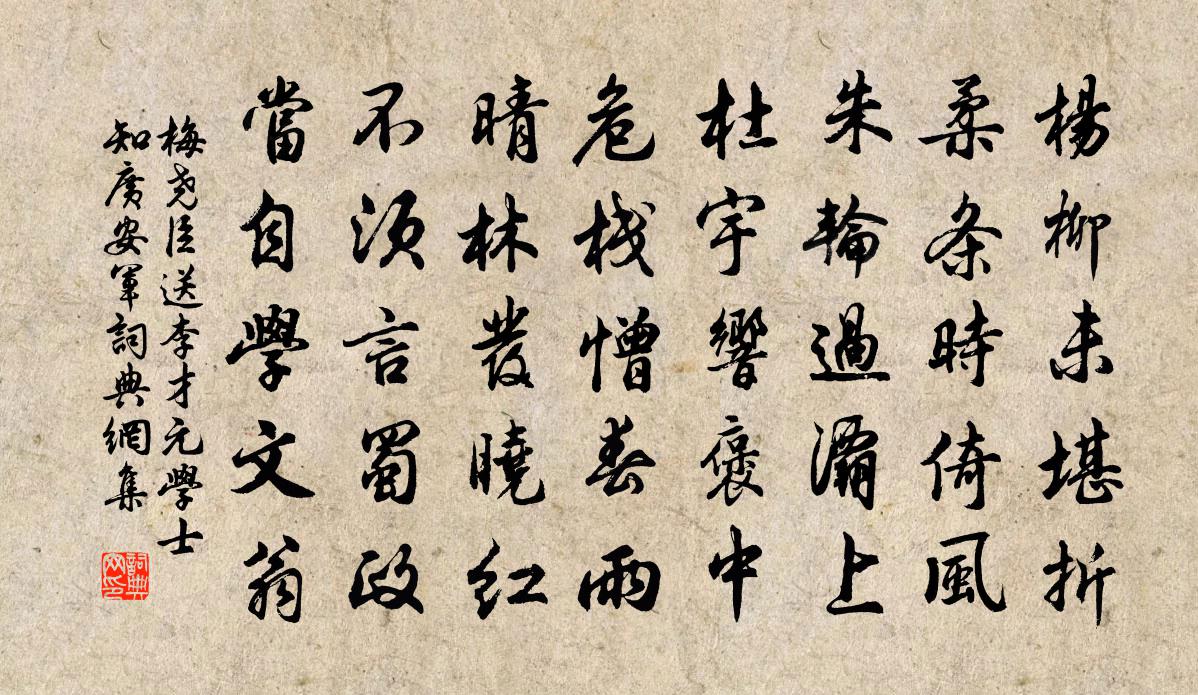 楊柳未堪折
柔条時倚風
朱輪過灞上
杜宇響褒中
危栈憎春雨
晴林發曉紅
不須言蜀政
當自學文翁
梅尧臣送李才元學士
知廣安軍詞典網集
詞典
网印